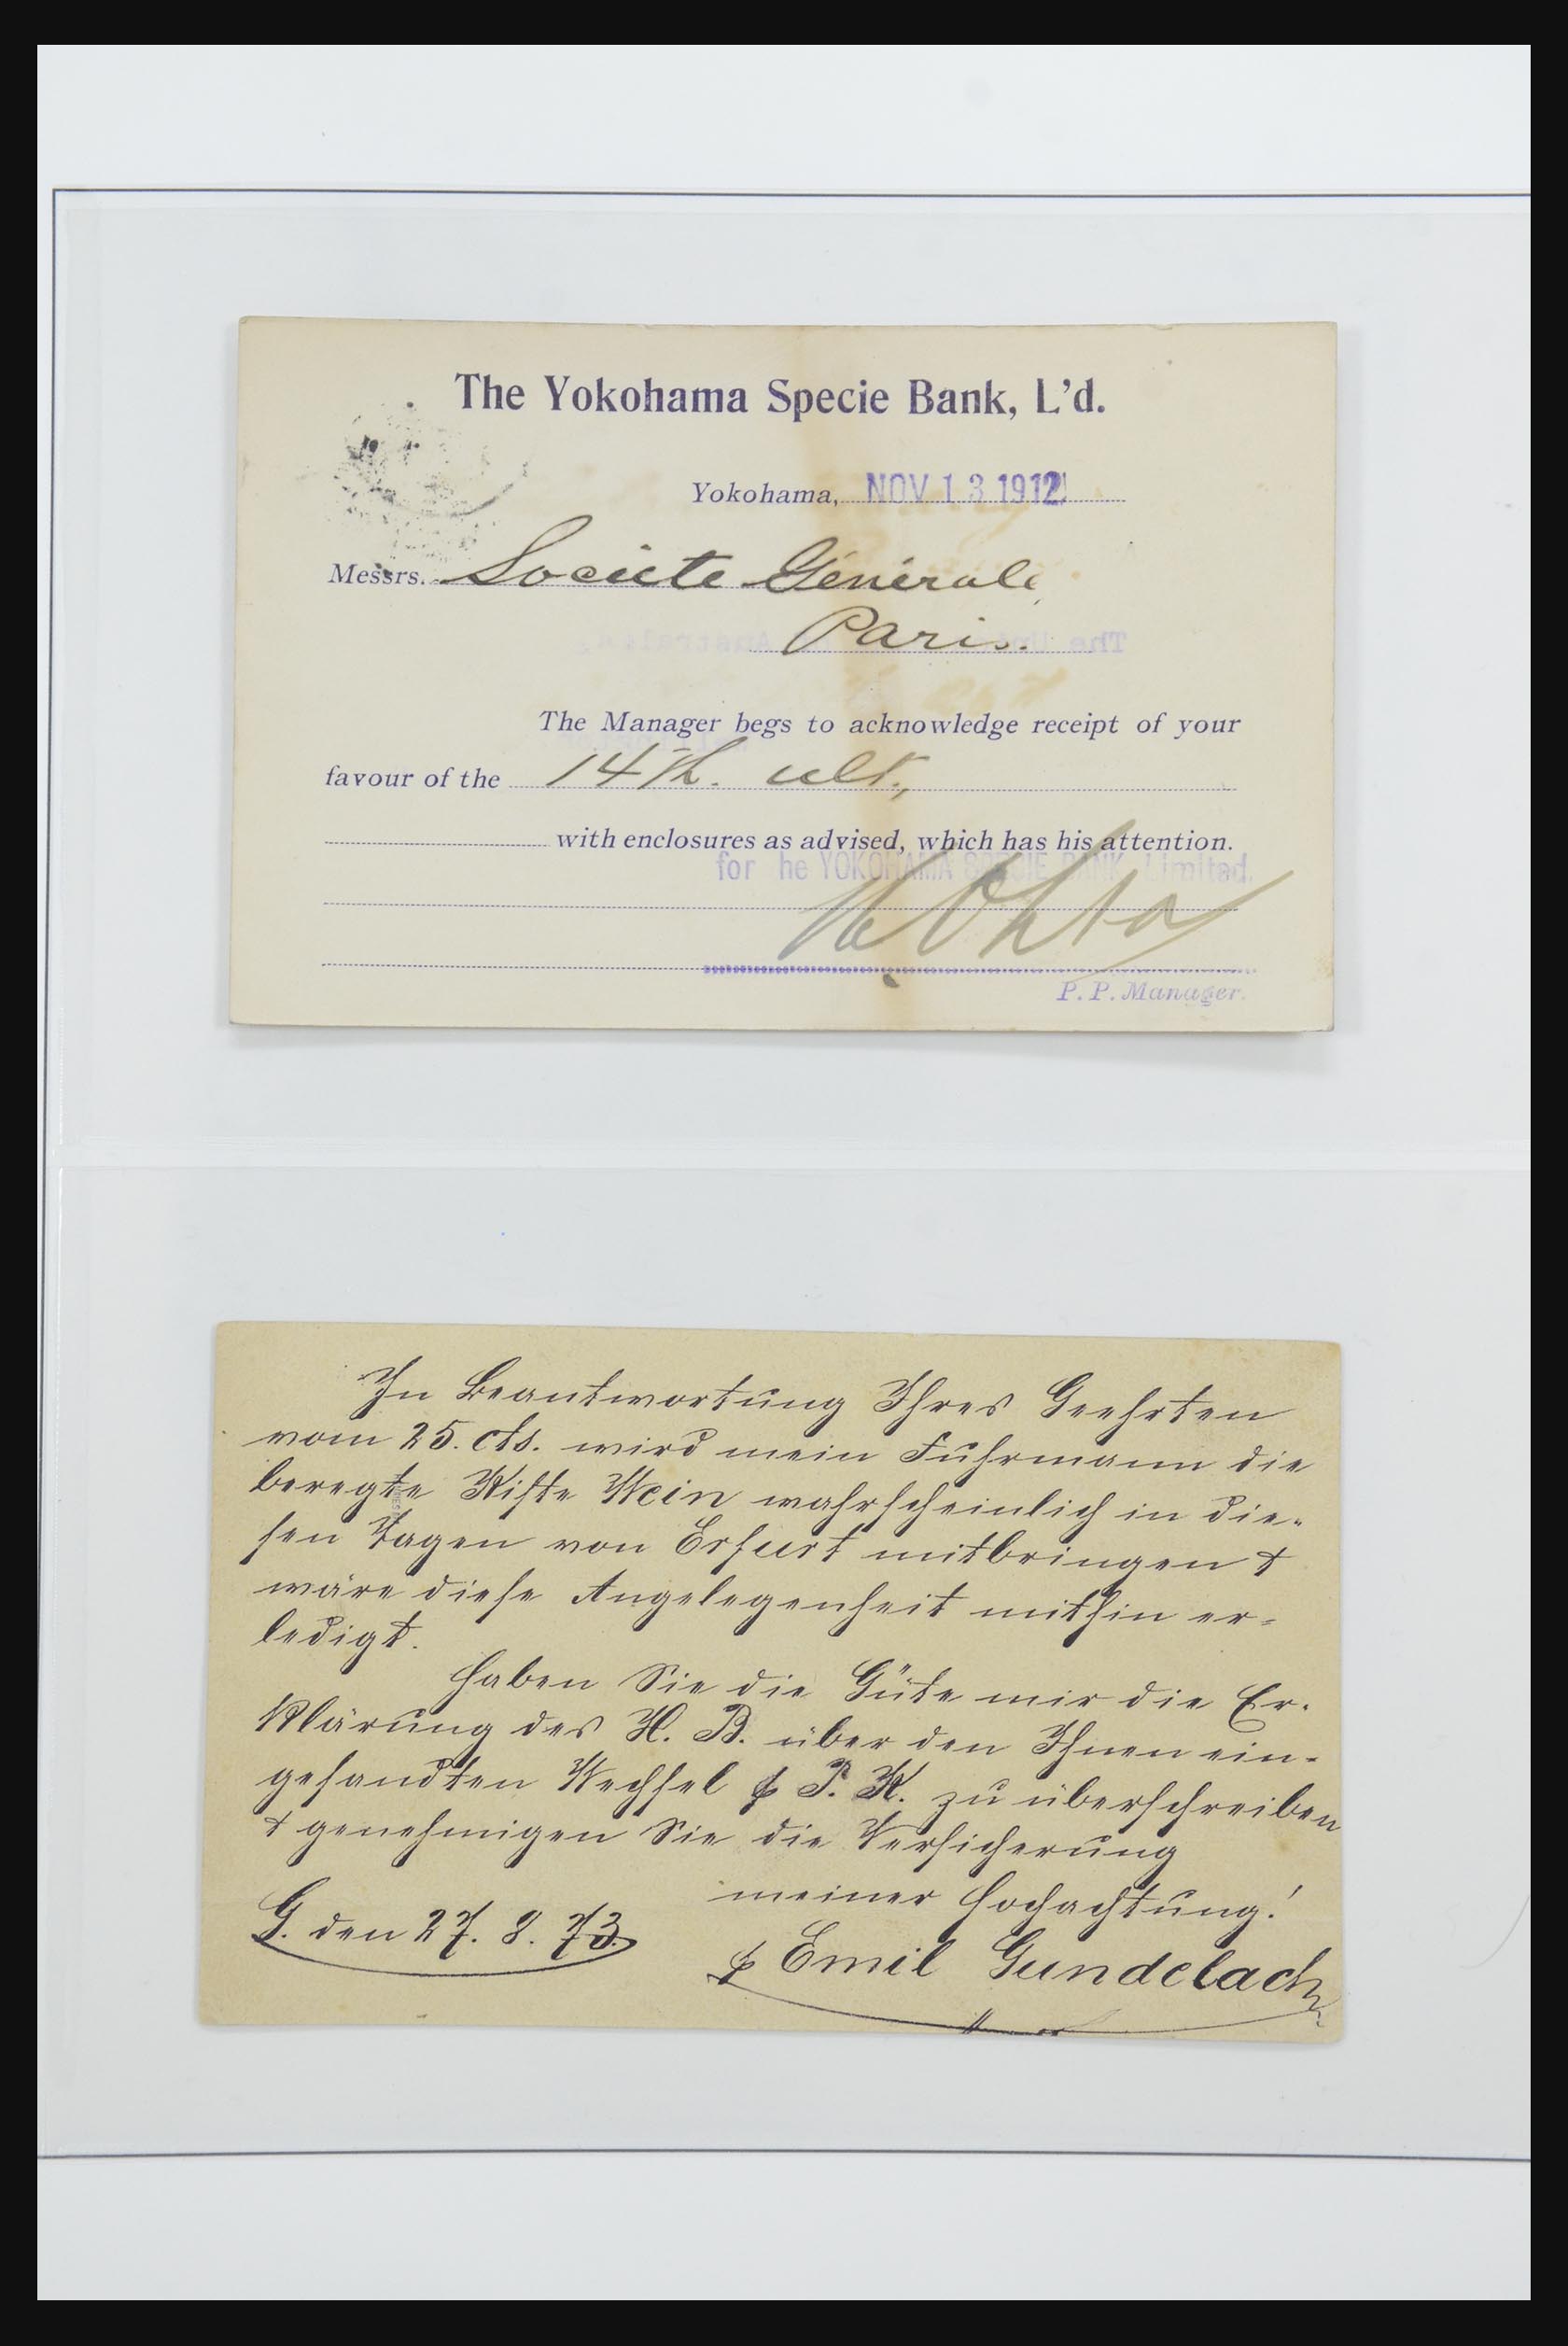 The Yokohama Specie Bank, L'd.
Yokohama, NOV 13 1912
Messrs. Société Générale
Paris.
The Manager begs to acknowledge receipt of your
favour of the 14th. ult.,
with enclosures as advised, which has his attention.
for he YOKOHAMA SPECIE BANK, Limited.
P. P. Manager.
In Beantwortung Ihres Geehrten
vom 25. cts. wird mein Fuhrmann die
beregte Kiste Wein wahrscheinlich in die-
sen Tagen von Erfurt mitbringen &
wäre diese Angelegenheit mithin er-
ledigt.
Haben Sie die Güte mir die Er-
klärung des H. B. über den Ihnen ein-
gesandten Wechsel P. K. zu überschreiben
& genehmigen Sie die Versicherung
meiner Hochachtung!
G. den 27. 8. 73.
Emil Gundelach